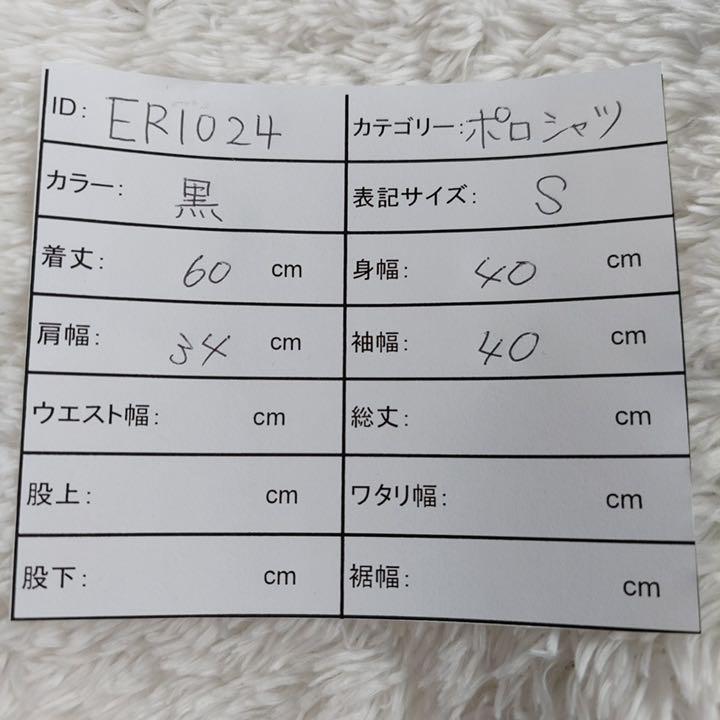 ID: ER1024 カテゴリー: ポロシャツ
カラー: 黒 表記サイズ: S
着丈: 60 cm 身幅: 40 cm
肩幅: 34 cm 袖幅: 40 cm
ウエスト幅: cm 総丈: cm
股上: cm ワタリ幅: cm
股下: cm 裾幅: cm